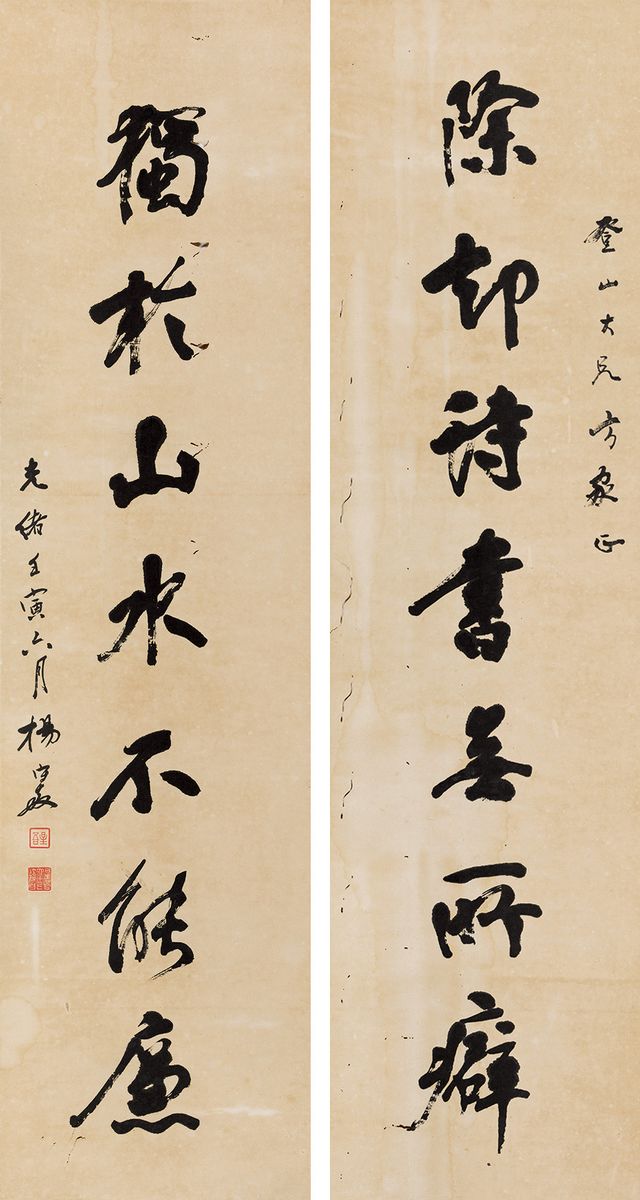 登山大兄方家正
除却诗書無所癖
獨於山水不能廉
光緒壬寅六月楊守敬